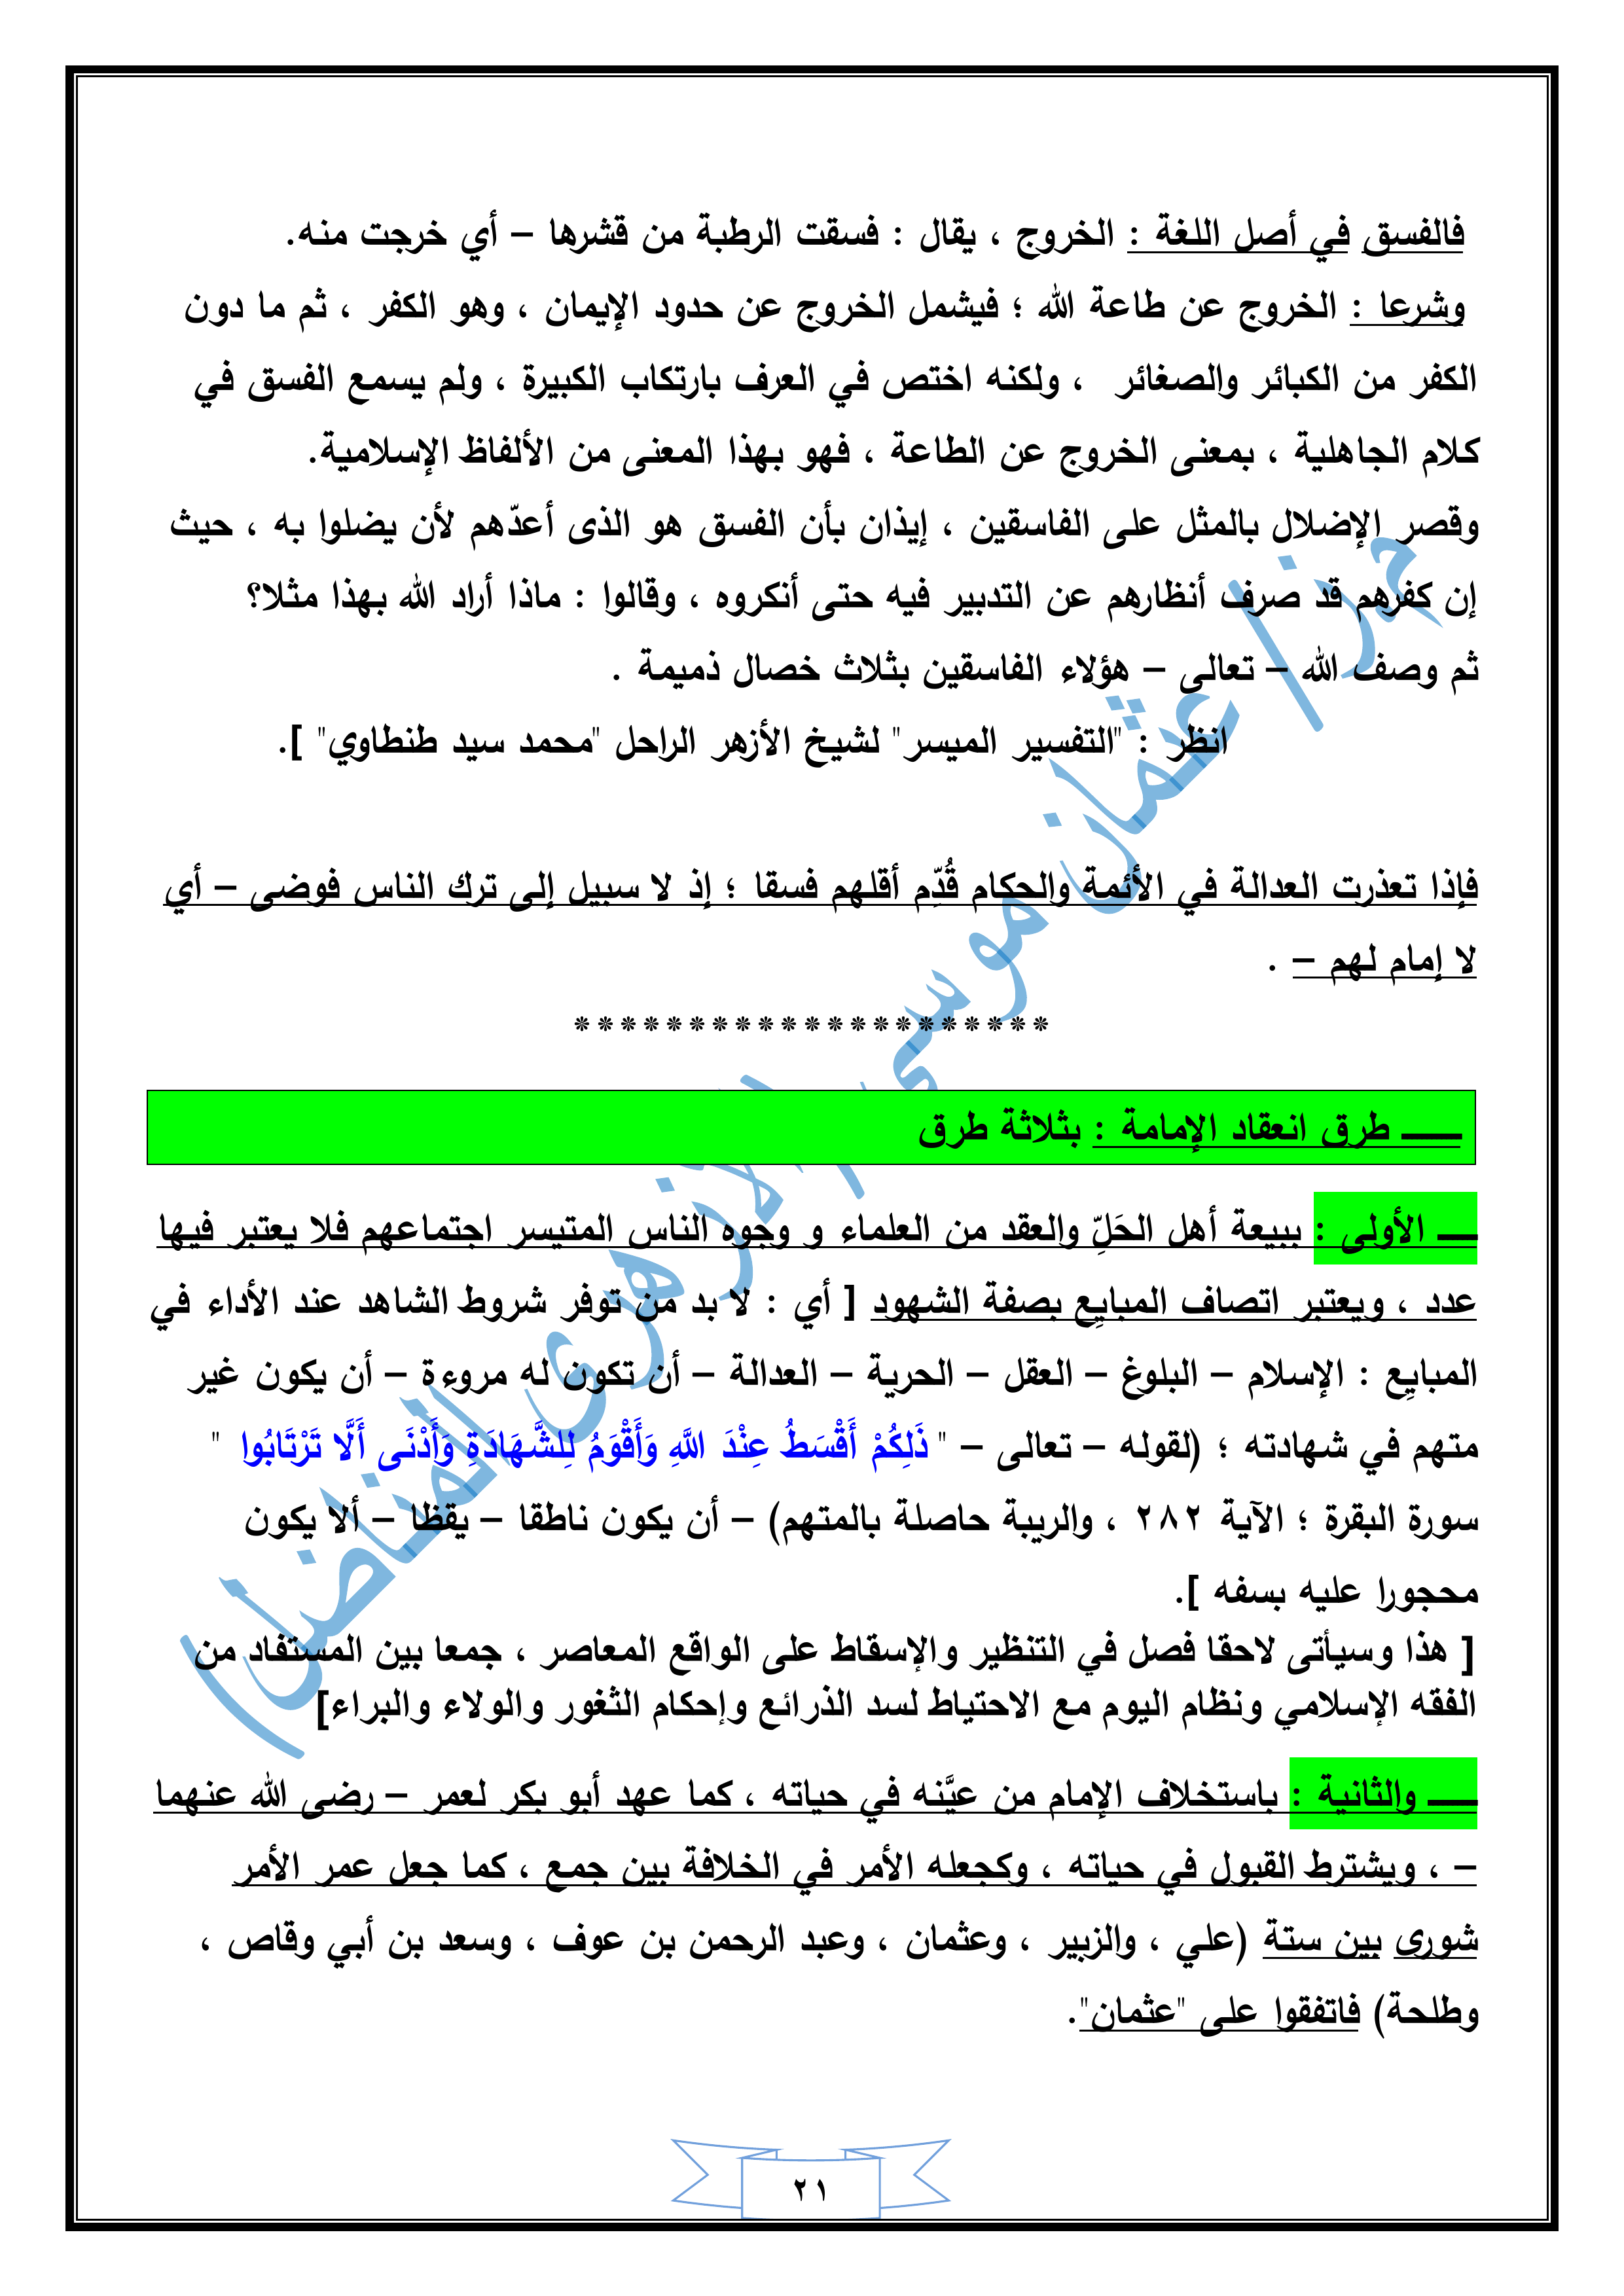 فالفسق في أصل اللغة : الخروج ، يقال : فسقت الرطبة من قشرها – أي خرجت منه.
وشرعا : الخروج عن طاعة الله ؛ فيشمل الخروج عن حدود الإيمان ، وهو الكفر ، ثم ما دون
الكفر من الكبائر والصغائر ، ولكنه اختص في العرف بارتكاب الكبيرة ، ولم يسمع الفسق في
كلام الجاهلية ، بمعنى الخروج عن الطاعة ، فهو بهذا المعنى من الألفاظ الإسلامية.
وقصر الإضلال بالمثل على الفاسقين ، إيذان بأن الفسق هو الذى أعدّهم لأن يضلوا به ، حيث
إن كفرهم قد صرف أنظارهم عن التدبير فيه حتى أنكروه ، وقالوا : ماذا أراد الله بهذا مثلا؟
ثم وصف الله – تعالى – هؤلاء الفاسقين بثلاث خصال ذميمة .
انظر : "التفسير الميسر" لشيخ الأزهر الراحل "محمد سيد طنطاوي" ].
فإذا تعذرت العدالة في الأئمة والحكام قُدِّم أقلهم فسقا ؛ إذ لا سبيل إلى ترك الناس فوضى – أي
لا إمام لهم – .
* * * * * * * * * * * * * * * * * * * * *
ـــــ طرق انعقاد الإمامة : بثلاثة طرق
ـــ الأولى : ببيعة أهل الحَلِّ والعقد من العلماء و وجوه الناس المتيسر اجتماعهم فلا يعتبر فيها
عدد ، ويعتبر اتصاف المبايِع بصفة الشهود [ أي : لا بد من توفر شروط الشاهد عند الأداء في
المبايِع : الإسلام – البلوغ – العقل – الحرية – العدالة – أن تكون له مروءة – أن يكون غير
متهم في شهادته ؛ (لقوله – تعالى – " ذَلِكُمْ أَقْسَطُ عِنْدَ اللَّهِ وَأَقْوَمُ لِلشَّهَادَةِ وَأَدْنَى أَلَّا تَرْتَابُوا "
سورة البقرة ؛ الآية ٢٨٢ ، والريبة حاصلة بالمتهم) – أن يكون ناطقا – يقظا – ألا يكون
محجورا عليه بسفه ].
[ هذا وسيأتى لاحقا فصل في التنظير والإسقاط على الواقع المعاصر ، جمعا بين المستفاد من
الفقه الإسلامي ونظام اليوم مع الاحتياط لسد الذرائع وإحكام الثغور والولاء والبراء]
ـــــ والثانية : باستخلاف الإمام من عيَّنه في حياته ، كما عهد أبو بكر لعمر – رضى الله عنهما
– ، ويشترط القبول في حياته ، وكجعله الأمر في الخلافة بين جمع ، كما جعل عمر الأمر
شورى بين ستة (علي ، والزبير ، وعثمان ، وعبد الرحمن بن عوف ، وسعد بن أبي وقاص ،
وطلحة) فاتفقوا على "عثمان".
٢١